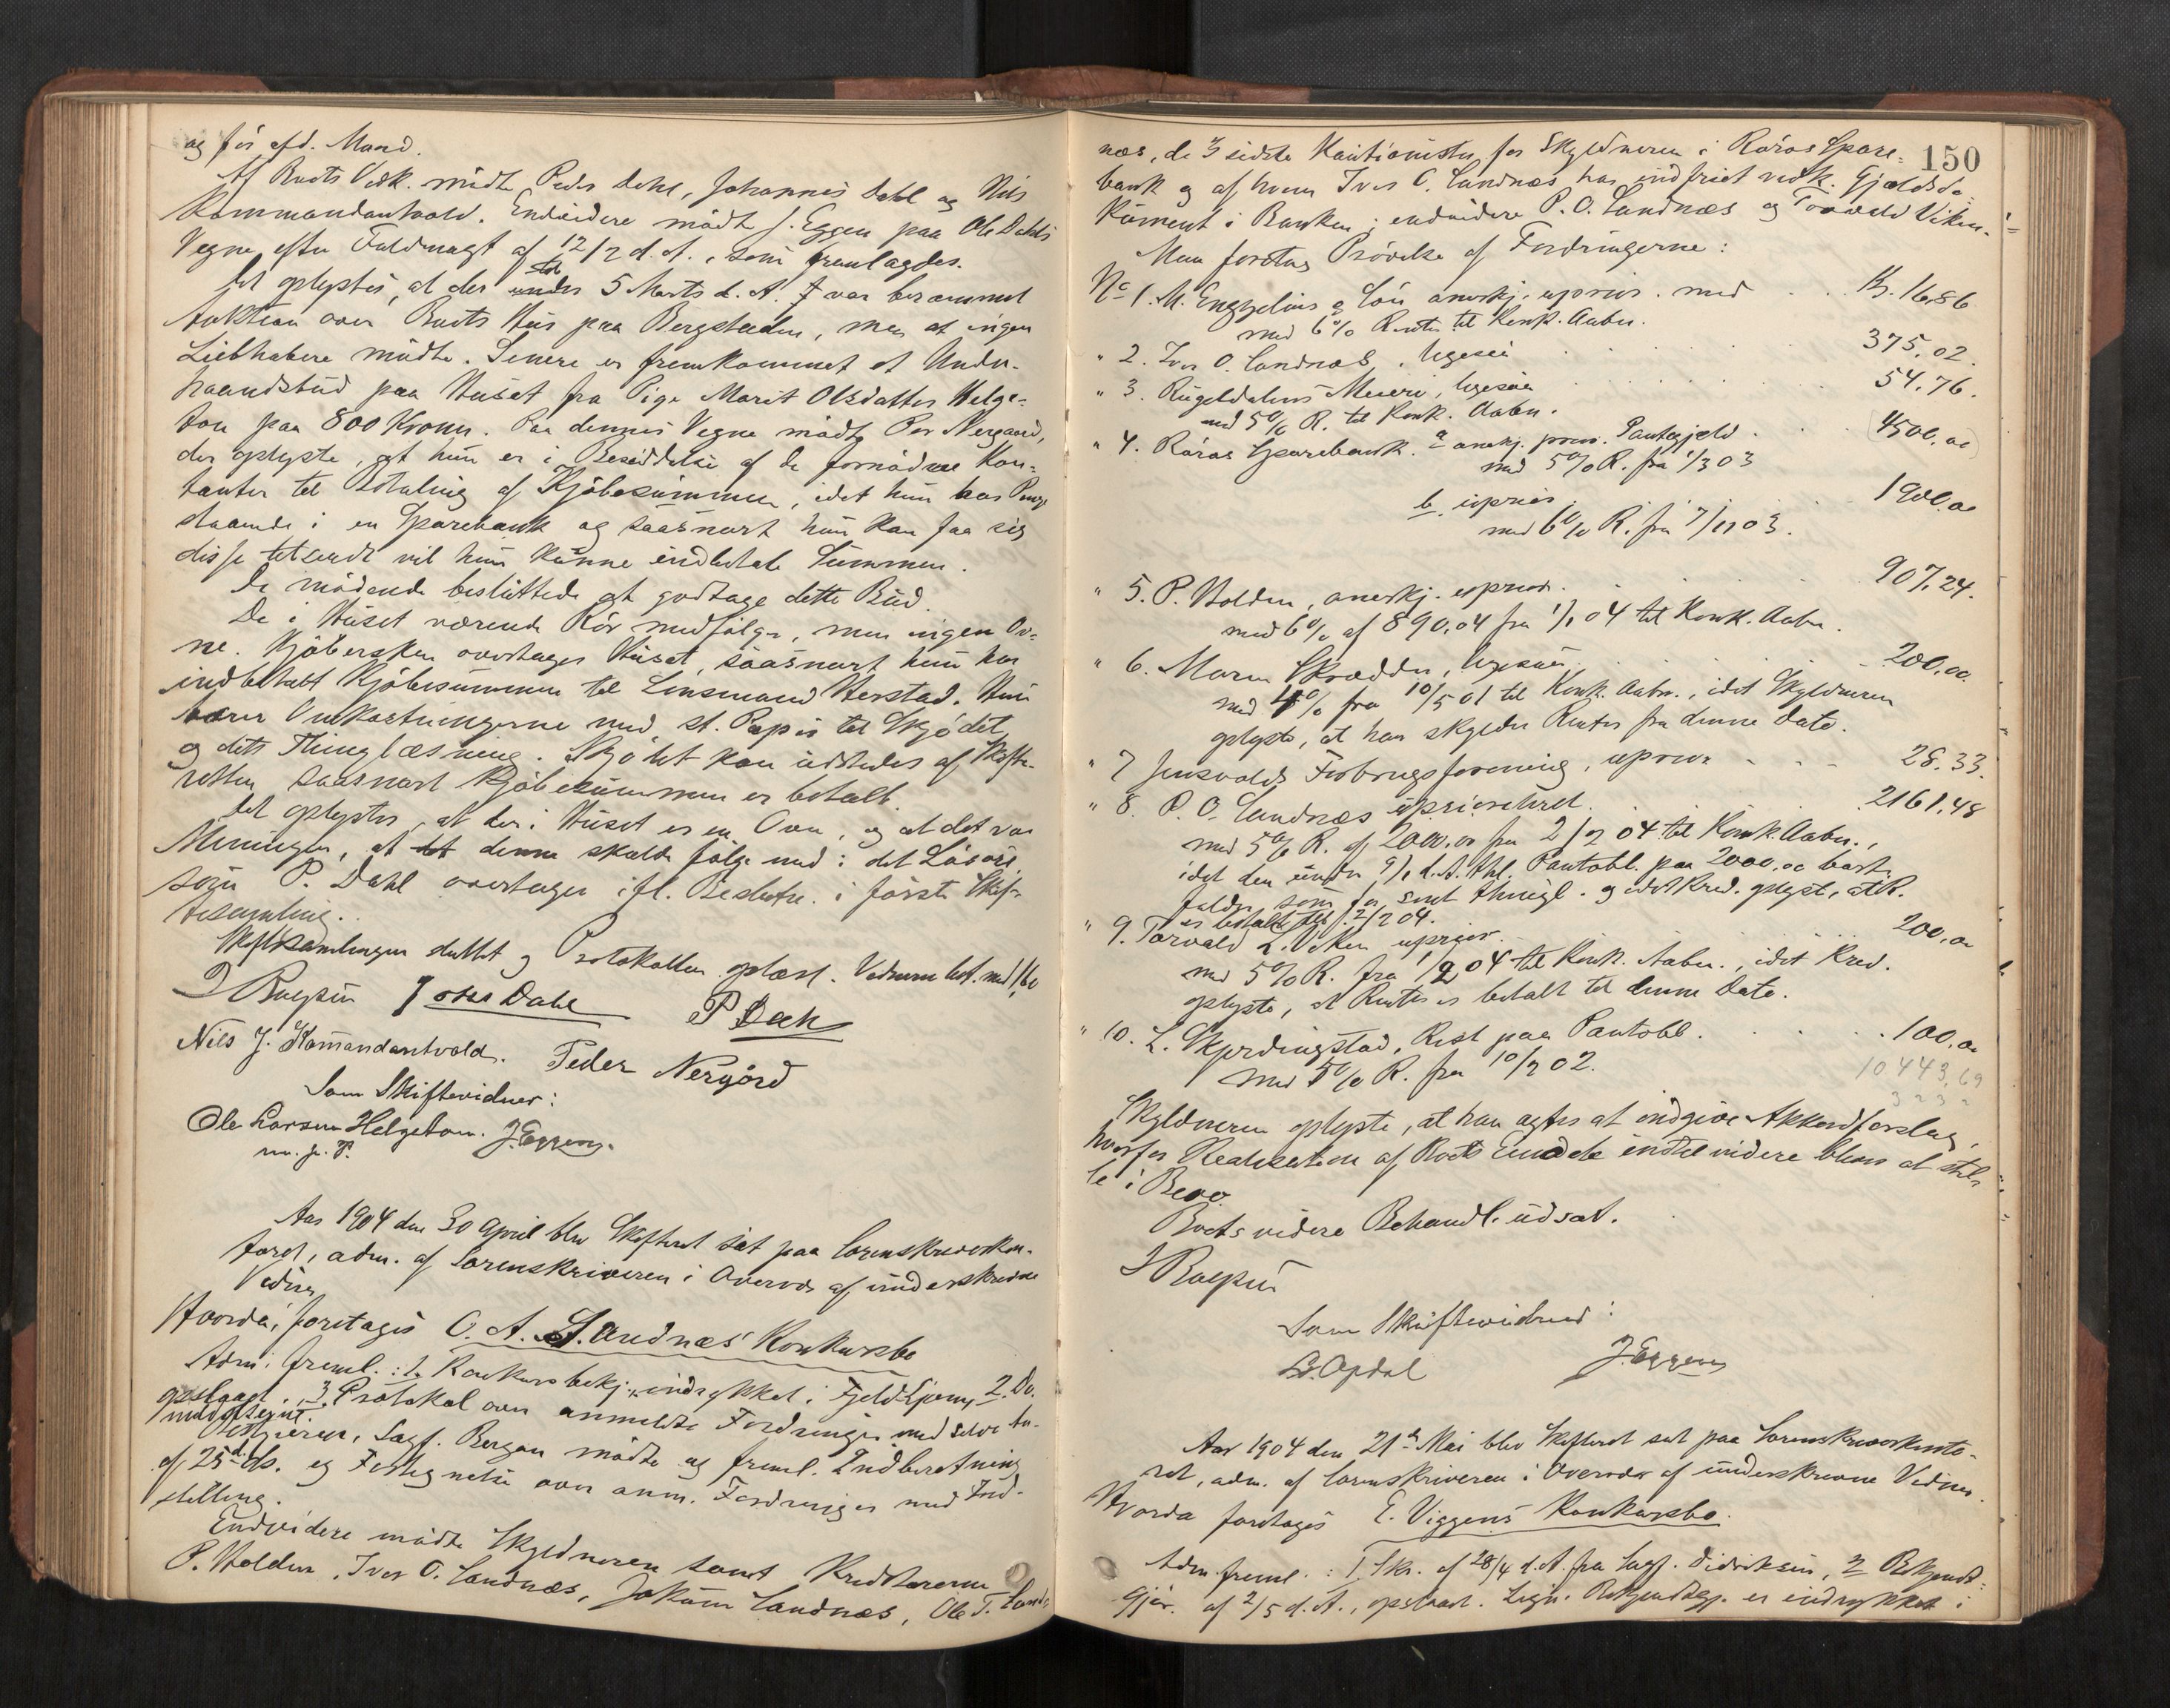 og for afd. Mand.
Af Boets Vedk. mødte Peder Dahl, Johannes Dahl og Nils
Kommandantvold. Endvidere mødte J. Eggen paa Ole Dahls
Vegne efter Fuldmagt af 12/2 d. A., som fremlagdes.
Det oplystes, at der under 5 Marts d. A. var berammet
Auktion over Boets Hus paa Bergstaden, men at ingen
Liebhabere mødte. Senere er fremkommet et Under-
haandsbud paa Huset fra Pige Marit Olsdatter Helge-
ton paa 800 Kroner. Paa dennes Vegne mødte Per Nergaard,
der oplyste, at hun er i Besiddelse af de fornødne Kon-
tanter til Betaling af Kjøbesummen, idet hun har Penge
staaende i en Sparebank og saasnart hun kan faa sig
disse tilsendt vil hun kunne indbetale Summen.
De mødende besluttede at godtage dette Bud.
De i Huset værende Rör medfølger, men ingen Ov-
ne. Kjøbersken overtager Huset, saasnart hun har
indbetalt Kjøbesummen til Linsmand Herstad. Hun
bærer Omkostningerne med st. Papir til Skjødet
og dets Thinglæsning. Skjødet kan udstedes af Skifte-
retten saasnart Kjøbesummen er betalt.
Det oplystes, at der i Huset er en Ovn, og at det var
Meningen, at denne skulde følge med i det Løsøre
som P. Dahl overtager ifl. Beslutn. i første Skif-
tesamling.
Skiftesamlingen sluttet og Protokollen oplæst. Vidnerne bet. med 1,60
Johs Dahl P Dahl
Nils J. Komandantvold. Peder Nergård
Som Skiftevidner:
Ole Larsen Helgeton. J. Eggen.
m. f. P.
Aar 1904 den 30 April blev Skifteret sat paa Sorenskriverkon-
toret, adm. af Sorenskriveren i Overvær af underskrevne
Vidner
Hvorda, foretages O. A. Sandnæs' Konkursbo
Adm. freml.: 1. Konkursbekj. indrykket i Fjeld-Ljom, 2. Do.
opslaget. 3. Protokol over anmeldte Fordringer med selve An-
meldelserne.
Bestyreren, Sagf. Bergan mødte og freml. Indberetning
af 25 d. Ms. og Fortegnelse over anm. Fordringer med Ind-
stilling.
Endvidere mødte Skyldneren samt Kreditorerne
P. Holden, Iver O. Sandnæs, Jakum Sandnæs, Ole T. Sand-
150
næs, de 3 sidste Kautionister for Skyldneren i Røros Spare-
bank og af hvem Iver O. Sandnæs har indfriet vedk. Gjældsdo-
kument i Banken; endvidere P. O. Sandnæs og Torvald Viken.
Man foretog Prøvelse af Fordringerne:
No 1. M. Engzelius & Søn anerkj. uprior. med Kr. 16.86
med 6% Renter til Konk. Aabn.
" 2. Iver O. Sandnæs, ligesaa 375.02.
" 3. Rugeldalens Meieri, ligesaa 54.76.
med 5% R. til Konk. Aabn.
" 4. Røros Sparebank. a anerkj. prior. Pantegjæld 4500.00
med 5% R. fra 1/3 03
b. uprior. 1900.00
med 6% R. fra 7/11 03.
" 5. P. Holden, anerkj. uprior. 907.24.
med 6% af 890.04 fra 1/1 04 til Konk. Aabn.
" 6. Maren Skrædder, ligesaa 200.00.
med 4% fra 10/5 01 til Konk. Aabn., idet Skyldneren
oplyste, at han skylder Renter fra denne Date.
" 7 Jensvolds Forbrugsforening, uprior 28.33.
" 8. P. O. Sandnæs uprioriteret 2161.48
med 5% R. af 2000.00 fra 2/2 04 til Konk. Aabn.,
idet den under 9/1 d. A. thl. Pantobl. paa 2000.00 bort-
falder, som for sent thingl. og idet Kred. oplyste, at R.
er betalt til 2/2 04.
" 9. Torvald L. Viken uprior. 200.00
med 5% R. fra 1/2 04 til Konk. Aabn., idet Kred.
oplyste, at Renter er betalt til denne Date.
" 10. L. Skjerdingstad, Rest paa Pantobl. 100.00
med 5% R. fra 10/2 02.
10443,69
Skyldneren oplyste, at han agter at indgive Akkordforslag,
hvorfor Realisation af Boets Eiendele indtil videre blev at stil-
le i Bero.
Boets videre Behandl. udsat.
Som Skiftevidner:
B. Opdal J. Eggen
Aar 1904 den 21de Mai blev Skifteret sat paa Sorenskriverkonto-
ret, adm. af Sorenskriveren i Overvær af underskrevne Vidner.
Hvorda foretages E. Viggens Konkursbo.
Adm. freml.: 1 Skr. af 28/4 d. A. fra Sagf. Didriksen, 2 Bekjendt-
gjør. af 2/5 d. A., opslaaet. Lign. Bekjendtgj. er indrykket i